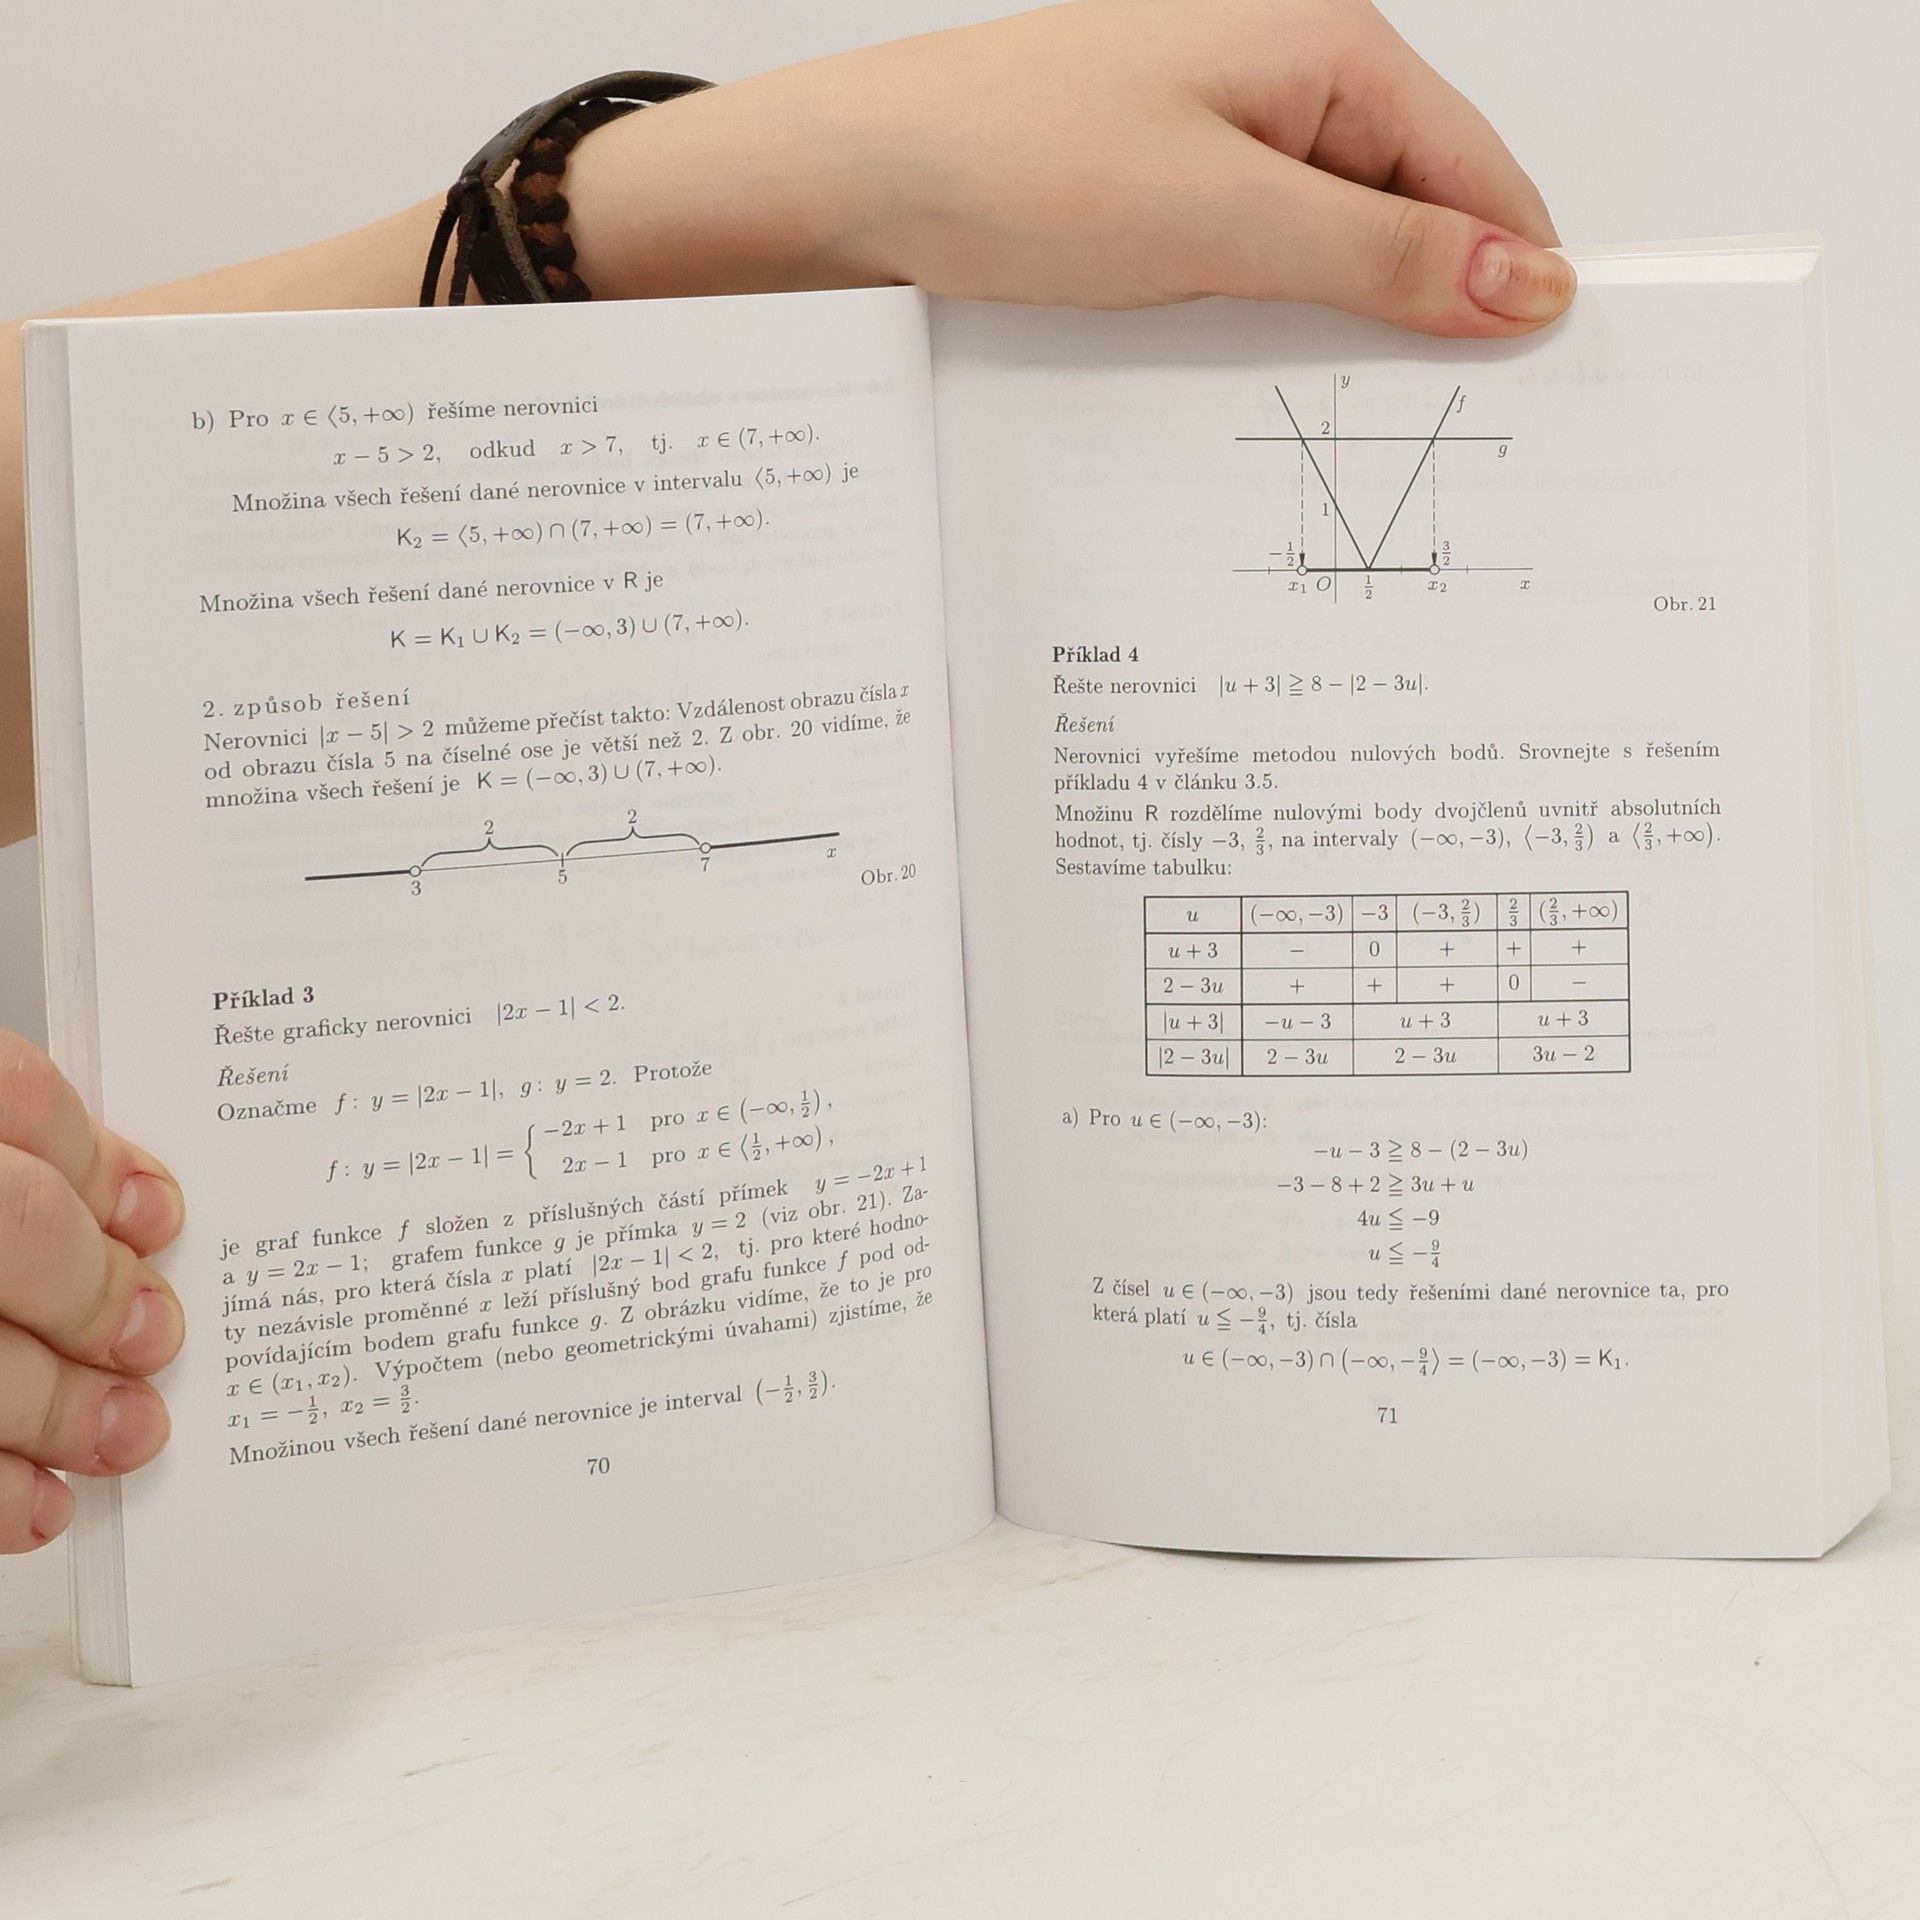 b) Pro x ∈ ⟨5, +∞) řešíme nerovnici
x − 5 > 2, odkud x > 7, tj. x ∈ (7, +∞).
Množina všech řešení dané nerovnice v intervalu ⟨5, +∞) je
K₂ = ⟨5, +∞) ∩ (7, +∞) = (7, +∞).
Množina všech řešení dané nerovnice v R je
K = K₁ ∪ K₂ = (−∞, 3) ∪ (7, +∞).
2. způsob řešení
Nerovnici |x − 5| > 2 můžeme přečíst takto: Vzdálenost obrazu čísla x
od obrazu čísla 5 na číselné ose je větší než 2. Z obr. 20 vidíme, že
množina všech řešení je K = (−∞, 3) ∪ (7, +∞).
2 2
3 5 7 x
Obr. 20
Příklad 3
Řešte graficky nerovnici |2x − 1| < 2.
Řešení
Označme f: y = |2x − 1|, g: y = 2. Protože
f: y = |2x − 1| = { −2x + 1 pro x ∈ (−∞, 1/2),
2x − 1 pro x ∈ ⟨1/2, +∞),
je graf funkce f složen z příslušných částí přímek y = −2x + 1
a y = 2x − 1; grafem funkce g je přímka y = 2 (viz obr. 21). Za-
jímá nás, pro která čísla x platí |2x − 1| < 2, tj. pro které hodno-
ty nezávisle proměnné x leží příslušný bod grafu funkce f pod od-
povídajícím bodem grafu funkce g. Z obrázku vidíme, že to je pro
x ∈ (x₁, x₂). Výpočtem (nebo geometrickými úvahami) zjistíme, že
x₁ = −1/2, x₂ = 3/2.
Množinou všech řešení dané nerovnice je interval (−1/2, 3/2).
70
y
f
2
g
1
−1/2 3/2
x₁ O 1/2 x₂ x
Obr. 21
Příklad 4
Řešte nerovnici |u + 3| ≧ 8 − |2 − 3u|.
Řešení
Nerovnici vyřešíme metodou nulových bodů. Srovnejte s řešením
příkladu 4 v článku 3.5.
Množinu R rozdělíme nulovými body dvojčlenů uvnitř absolutních
hodnot, tj. čísly −3, 2/3, na intervaly (−∞, −3), ⟨−3, 2/3) a ⟨2/3, +∞).
Sestavíme tabulku:
u (−∞, −3) −3 (−3, 2/3) 2/3 (2/3, +∞)
u + 3 − 0 + + +
2 − 3u + + + 0 −
|u + 3| −u − 3 u + 3 u + 3
|2 − 3u| 2 − 3u 2 − 3u 3u − 2
a) Pro u ∈ (−∞, −3):
−u − 3 ≧ 8 − (2 − 3u)
−3 − 8 + 2 ≧ 3u + u
4u ≦ −9
u ≦ −9/4
Z čísel u ∈ (−∞, −3) jsou tedy řešeními dané nerovnice ta, pro
která platí u ≦ −9/4, tj. čísla
u ∈ (−∞, −3) ∩ (−∞, −9/4⟩ = (−∞, −3) = K₁.
71